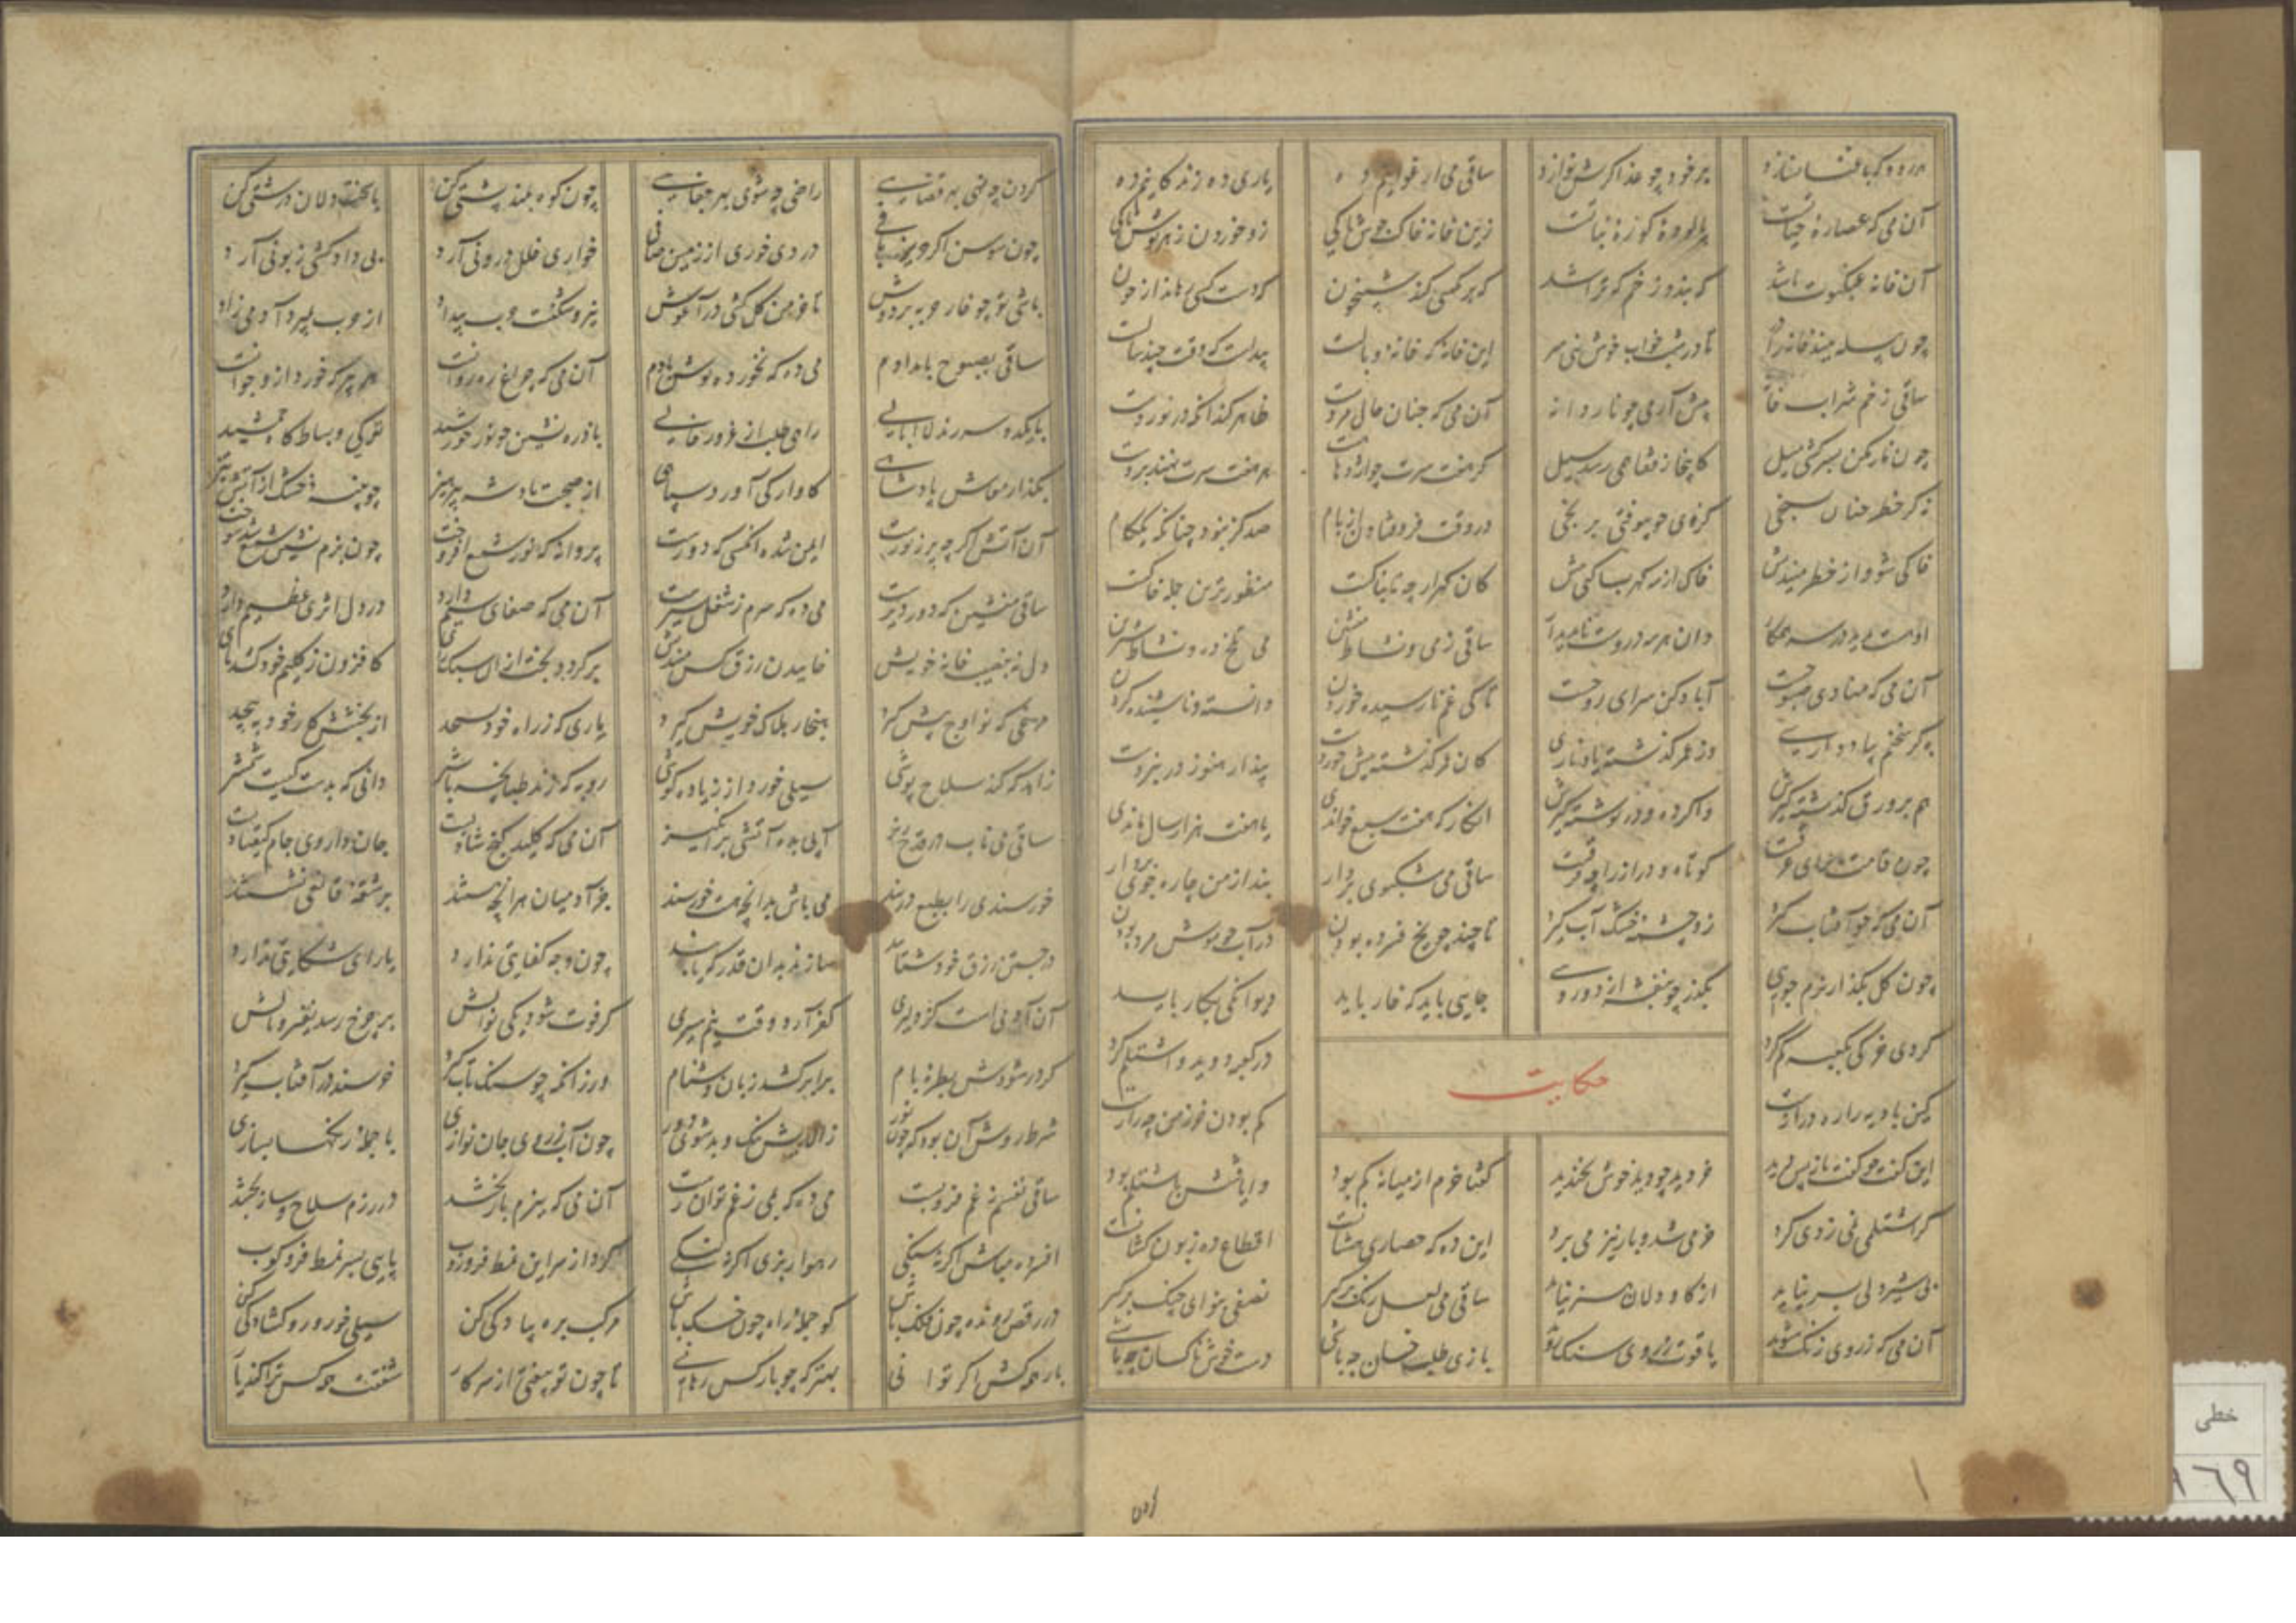 باقضا نسازد برخود چو غذا گرش نوازد ساقی می ارغوانیم ده یاری ده زندگانیم ده
آن می که عصاره حیاتست پالوده کوزه نباتست زین خانه خاک پوش تا کی زو خوردن زهر نوش تا کی
آن خانه عنکبوت باشد که بندد زخم که خراشد که بر مگسی کند شبیخون که دست کسی رهاند از خون
چون پیله ببند خانه را در تا در شبخواب خوش نهی سر این خانه که خانه وبالست پیداست که وقف چند سالست
ساقی ز خم شراب خانه پیش آر می چو ناردانه آن می که چنان حال مردست ظاهر کند آنکه در نوردست
چون نار مکن بسرکشی میل کاینجا ز قفا همی رسد سیل گر هفت سرت چو اژدها هست هر هفت سرت نهند بر دست
چو بیوفتی برنجی در وقت فروفتادن از بام صد گز نبود چنانکه یک گام
خاکی شو و از خطر میندیش خاک از سه گهر بساکنی بیش کان گهر ارچه تابناکست منظورترین جمله خاکست
او هست پدید در سه همکار وان هر سه دروست ناپدیدار ساقی ز می و نشاط منشین می تلخ ده و نشاط شیرین
آن می که منادی صبوحست آباد کن سرای روحست تا کی غم نارسیده خوردن دانستن و ناشنیده کردن
به گر سخنم بیاد داری وز عمر گذشته یاد ناری کان عمر گذشته پیش خوردست پندار هنوز در نبردست
هم بر ورق گذشته گیرش واکرده و درنوشته گیرش انگار که هفت سبع خواندی یا هفت هزار سال ماندی
چون قامت ما برای غرقست کوتاه و دراز را چه فرقست ساقی می مشکبوی بردار بنداز من چاره جوی بردار
آن می که چو آفتاب گیرد زو چشمه خشک آب گیرد تا چند چو یخ فسرده بودن در آب چو موش مرده بودن
چون گل بگذار نرم خویی بگذر چو بنفشه از دورویی جایی باید که خار باید دیوانگی بکار باید
کردی خرکی بکعبه گم کرد در کعبه دوید و اشتلم کرد
حکایت
کین بادیه را ره درازست گم بودن خر ز من چه رازست
این گفت چو گفت باز پس دید خر دید چو دید خوش بخندید گفتا خرم از میانه گم بود وایافتنش باشتلم بود
گر اشتلمی نمی زدی کرد خر می شد و بار نیز می برد این ده که حصار بیهشانست اقطاع ده زبون کشانست
بی شیردلی بسر نیاید از گاو دلان هنر نیاید ساقی می لعل رنگ برگیر نصفی بنوای چنگ برگیر
آن می که ز روی زنگ شوید یاقوت ز روی سنگ شوید بازی طلب خسان چه باشی دست خوش ناکسان چه باشی
گردن
گردن چه نهی بهر قفایی راضی چه شوی بهر جفایی چون کوه بلند پشتیی کن با سخت دلان درشتیی کن
چون سوسن اگر حریر بافی دردی خوری از زمین صافی خواری خلل درونی آرد بی دادکشی زبونی آرد
باش تو چو خار حربه بر دوش تا خرمن گل کشی در آغوش نیرو شکنست حیف بیداد از حیف بمیرد آدمی زاد
ساقی بصبوح بامدادم می ده که نخورده نوش بادم آن می که چراغ رهروانست هر پیر که خورد ازو جوانست
با یکدو سه رند لاابالی راهی طلب از غرور خالی با ذره نشین چو نور خورشید تو کی و بساط کاخ جمشید
بگذار معاش پادشاهی کاوارگی آورد سپاهی از صحبت پادشه بپرهیز چون پنبه خشک از آتش تیز
آن آتش اگر چه پر ز نورست ایمن شده آنکسی که دورست پروانه که نور شمع افروخت چون بزم نشین شمع شد سوخت
ساقی منشین که دور دیرست می ده که سرم ز شغل سیرست آن می که صفای سیم دارد در دل اثری عظیم دارد
دل نه بنصیب خانه خویش خاییدن رزق کس میندیش برگردد بخت از آن سبک رای کافزون ز گلیم خود کشد پای
مرغی که نه اوج پیش گیرد هنجار هلاک خویش گیرد ماری که ز راه خود بپیچد از پیچش کار خود بپیچد
زاهد که کند سلاح پوشی سیلی خورد از زیاده کوشی روبه که زند طپانچه با شیر دانی که بدست کیست شمشیر
ساقی می ناب در قدح ریز آبی بده آتشی برانگیز آن می که کلید گنج شادیست جان داروی جام کیقبادیست
خرسندی را بطبع دربند می باش بدانچه هست خرسند جز آدمیان هر آنچه هستند بر شقه قانعی نشستند
در جستن رزق خود شتابند سازند بدان قدر که یابند چون وجه کفایتی ندارد یارای شکایتی ندارد
آن آدمی است کز دلیری کفر آرد وقت نیم سیری گر فوت شود یکی نوالش بر چرخ رسد نفیر و نالش
گر تر شودش بقطره بام برابر کشد زبان بدشنام ور زانکه چو سنگ تاب گیرد خرسند در آفتاب گیرد
شرط روش آن بود که چون نور زآلایش نیک و بد شوی دور چون آب ز روی جان نوازی با جمله رنگها بسازی
ساقی نفسم ز غم فروبست می ده که بمی ز غم توان رست آن می که ببزم ناز بخشد در رزم سلاح و ساز بخشد
افسرده مباش اگر نه سنگی رهوارتر آی اگر نه لنگی گرد از سر این نمط فروروب پایی بسر نمط فروکوب
در رقص رونده چون فلک باش گو جمله راه چون خسک باش مرکب بده و پیادگی کن سیلی خور و روگشادگی کن
بار همه کش اگر توانی بهتر که چو بار کس رهانی تا چون تو بیفتی از سر کار شفقت همه کس ترا کند یار
خطی